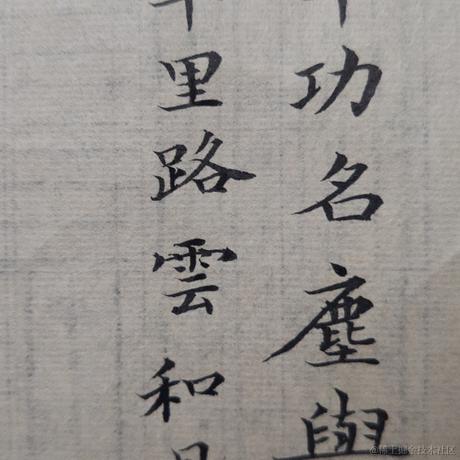 功名塵與
里路雲和
@稀土掘金技术社区